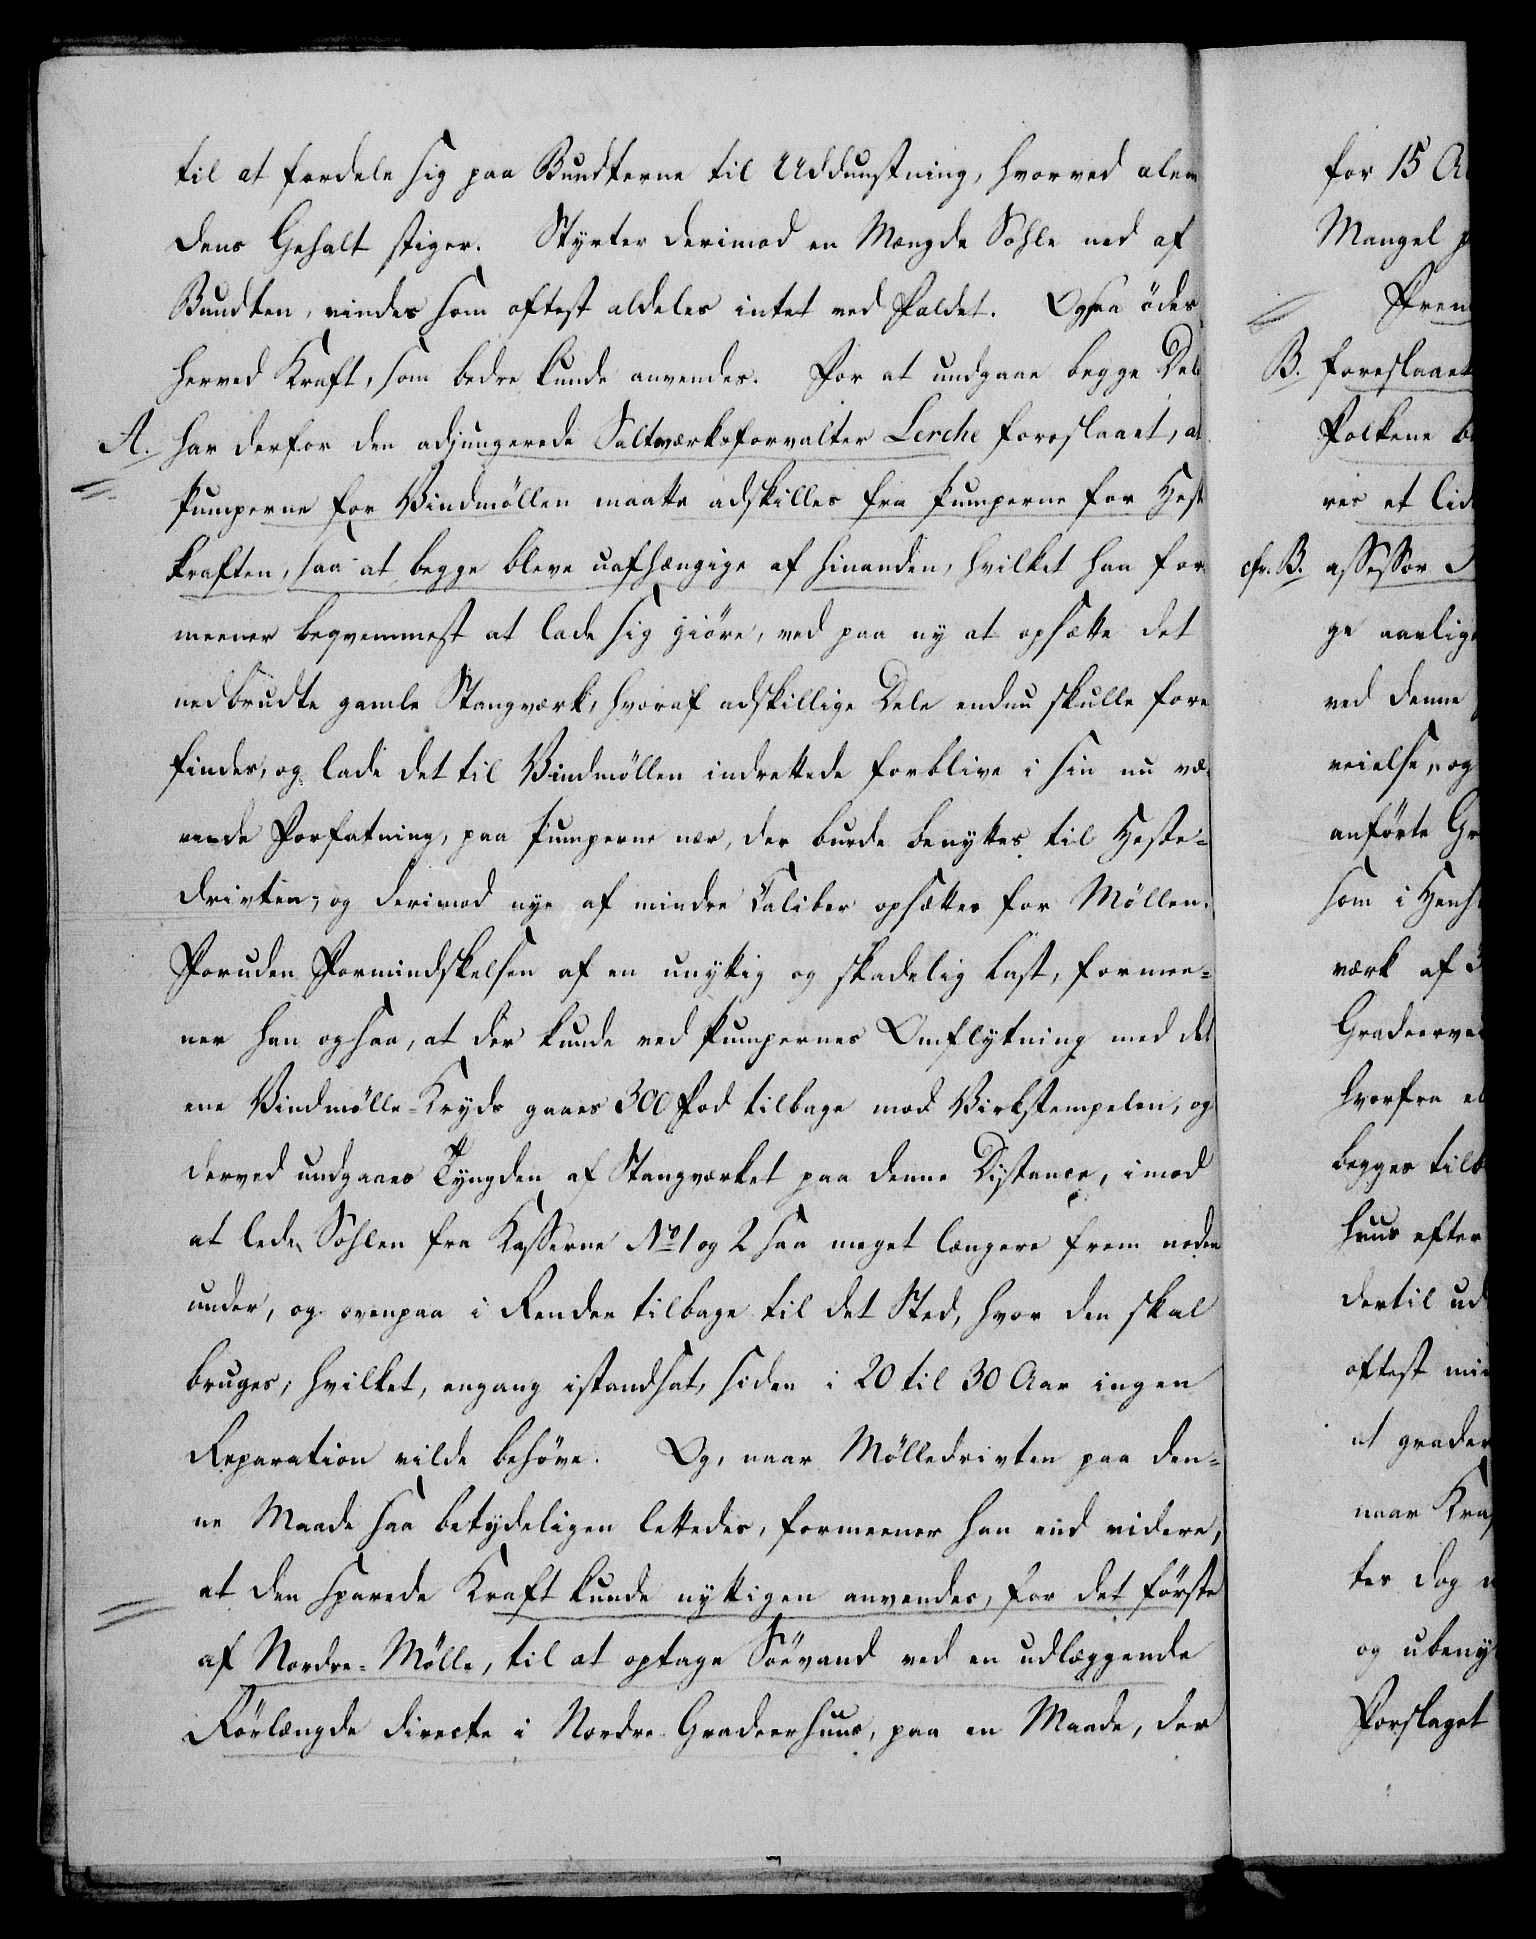 til at fordele sig paa Bundterne til Uddunstning, hvorved alene
dens Gehalt stiger. Styrter derimod en Mængde Sohle ned af
Bundten, vindes som oftest aldeles intet ved Faldet. Ogsaa ödes
herved Kraft, som bedre kunde anvendes. For at undgaae begge Dele
A. har derfor den adjungerede Saltværksforvalter Lerche foreslaaet, at
Pumperne for Vindmöllen maatte adskilles fra Pumperne for Heste
kraften, saa at begge bleve uafhængige af hinanden, hvilket han for-
meener beqvemmest at lade sig giöre, ved paa ny at opsætte det
nedbrudte gamle Stangværk, hvoraf adskillige Dele endnu skulle fore
findes, og lade det til Vindmöllen indrettede forblive i sin nu væ-
rende Forfatning, paa Pumperne nær, der burde benyttes til Heste-
drivten, og derimod nye af mindre Caliber opsættes for Möllen.
Foruden Formindskelsen af en unyttig og skadelig Last, formee-
ner han ogsaa, at der kunde ved Pumpernes Omflytning med det
ene Vindmölle-Kryds gaaes 300 Fod tilbage mod Virkstempelen, og
derved undgaaes Tyngden af Stangværket paa denne Distance, imod
at lede Sohlen fra Kasserne No 1 og 2 saa meget længere frem neden
under, og ovenpaa i Renden tilbage til det Sted, hvor den skal
bruges; hvilket, engang istandsat, siden i 20 til 30 Aar ingen
Reparation vilde behöve. Og, naar Mölledrivten paa den-
ne Maade saa betydeligen lettedes, formeener han end videre,
at den sparede Kraft kunde nyttigen anvendes, for det förste
af Nordre-Mölle, til at optage Söevand ved en udlæggende
Rörlængde directe i Nordre Gradeerhuus, paa en Maade, der
for 15
Mangel
B. foreslaaet
Folkene
res et
cfr. B. assessor
ge aarlig
ved denne
veielse, og
anförte
som i
værk af
Gradeerved
hvorfra
begges
huus efter
dertil
oftest
at grader
naar
tes dog
og
Forslaget